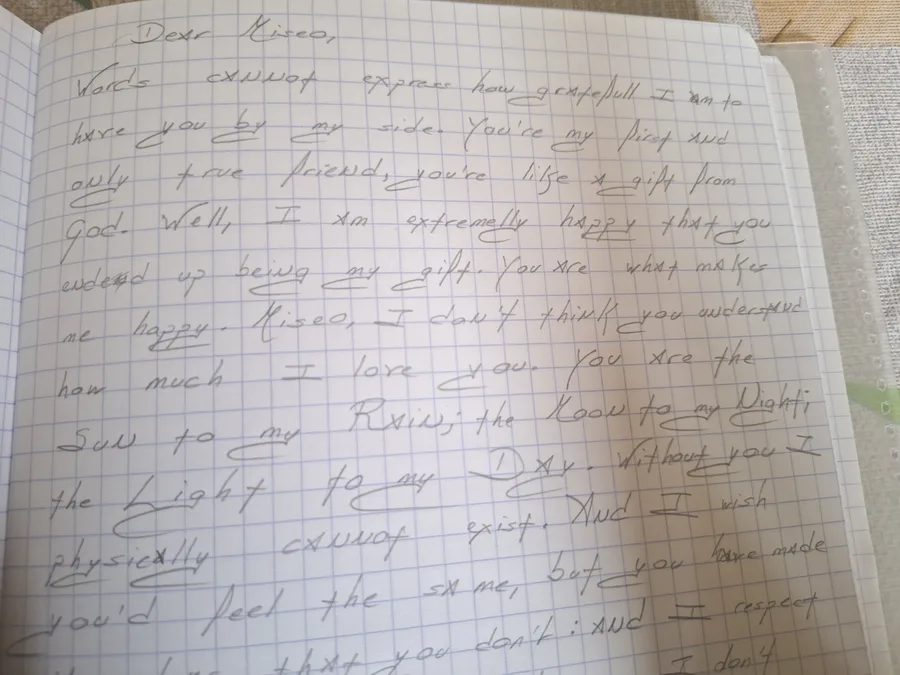 Dear Miseo,
Words cannot express how gratefull I am to
have you by my side. You're my first and
only true friend, you're like a gift from
God. Well, I am extremelly happy that you
ended up being my gift. You are what makes
me happy. Miseo, I don't think you understand
how much I love you. You are the
Sun to my Rain; the Moon to my Night;
the Light to my Day. Without you I
physically cannot exist. And I wish
you'd feel the same, but you have made
that you don't: and I respect
I don't